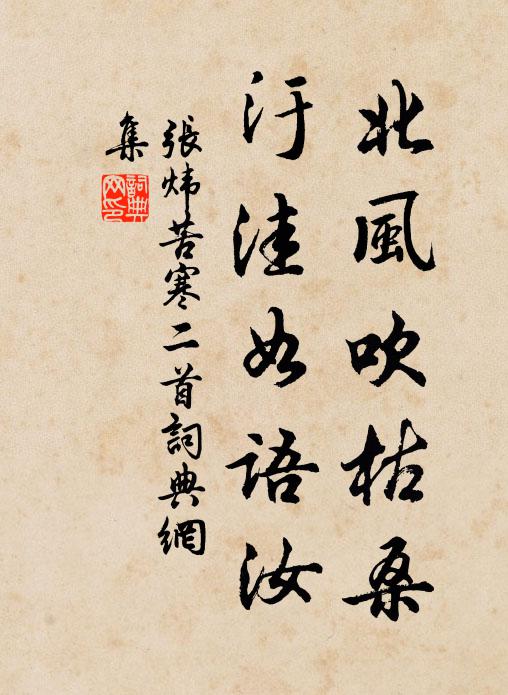 北風吹枯桑
汙洼如語汝
張煒苦寒二首詞典網
集
詞典
网印